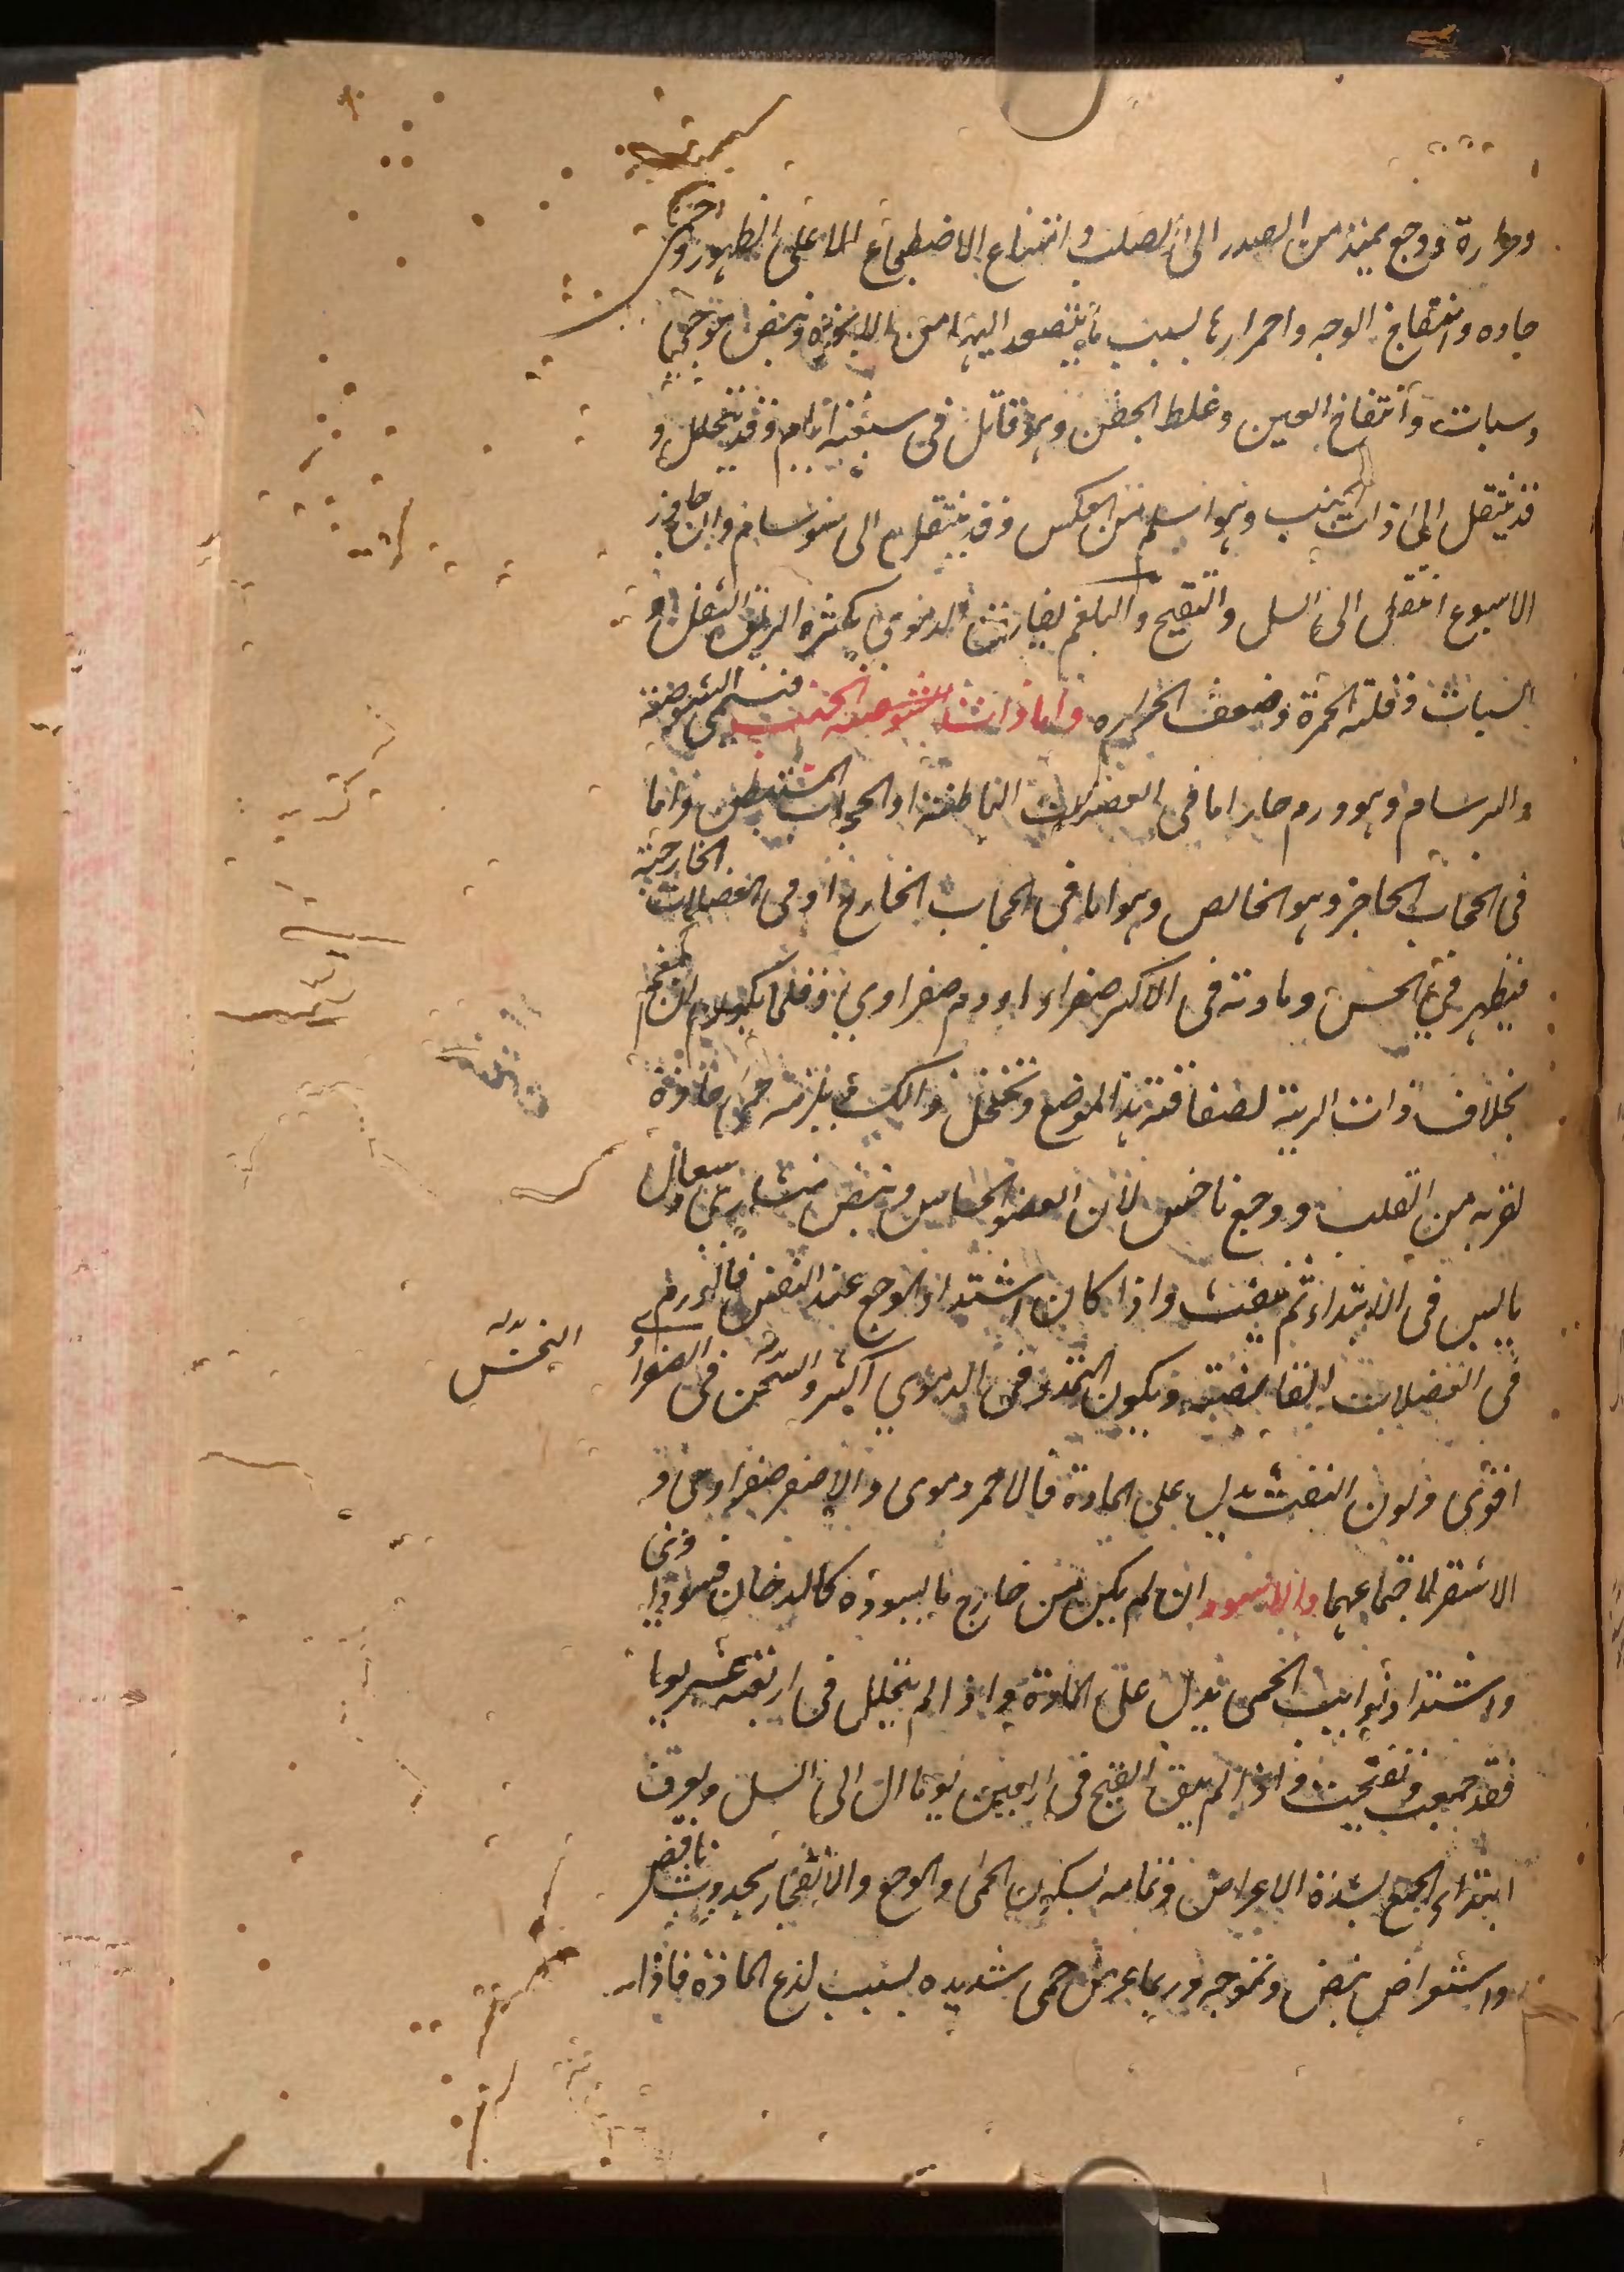 وحرارة ووجع يمتد من الصدر الى الصلب وامتناع الاضطجاع الا على الظهر وحمى
حاده وانتفاخ الوجه واحمرارها لسبب ما يتصعد اليها من الابخره ونبض موجى
وسبات وانتفاخ العين وغلظ الجفن وهو قاتل فى سبعة ايام وقد يتحلل و
قد ينتقل الى ذات الجنب وهو اسلم من العكس وقد ينتقل الى سرسام وان جاوز
الاسبوع انتقل الى السل والتقيح والبلغمى يفارق الدموى بكثرة الريق والثقل و
السبات وقلة الحمرة وضعف الحراره واما ذات الجنب فتسمى الشوصة
والبرسام وهو ورم حار اما فى العضلات الباطنة او الحجاب المستبطن واما
فى الحجاب الحاجز وهو الخالص وهو اما فى الحجاب الخارج او فى العضلات الخارجة
فيظهر فى الحس ومادته فى الاكثر صفراء او دم صفراوى وقلما يكون من بلغم
بخلاف ذات الرية لصفاقة هذا الموضع وتخلخل ذالك يلزمه حمى حادة
لقربه من القلب ووجع ناخس لان العضو حساس ونبض منشارى وسعال
يابس فى الابتداء ثم ينفث واذا كان اشتداد الوجع عند التنفس فالورم
فى العضلات القابضة ويكون التمدد فى الدموى اكثر والنخس فى الصفراوى
النخس بدله
اقوى ولون النفث يدل على المادة فالاحمر دموى والاصفر صفراوى و
الاشقر لاجتماعهما والاسود ان لم يكن من خارج ما يسوده كالدخان فسوداوى
واشتداد نوايب الحمى يدل على المادة واذا لم يتحلل فى اربعة عشر يوما
فقد جمعت وتقيحت واذا لم ينق القيح فى اربعين يوما ال الى السل ويعرف
ابتداء الجمع بشدة الاعراض وتمامه بسكون الحمى والوجع والانفجار بحدوث نافض
واستعراض نبض وتموجه وربما عرض حمى شديده بسبب لذع المادة فاذا